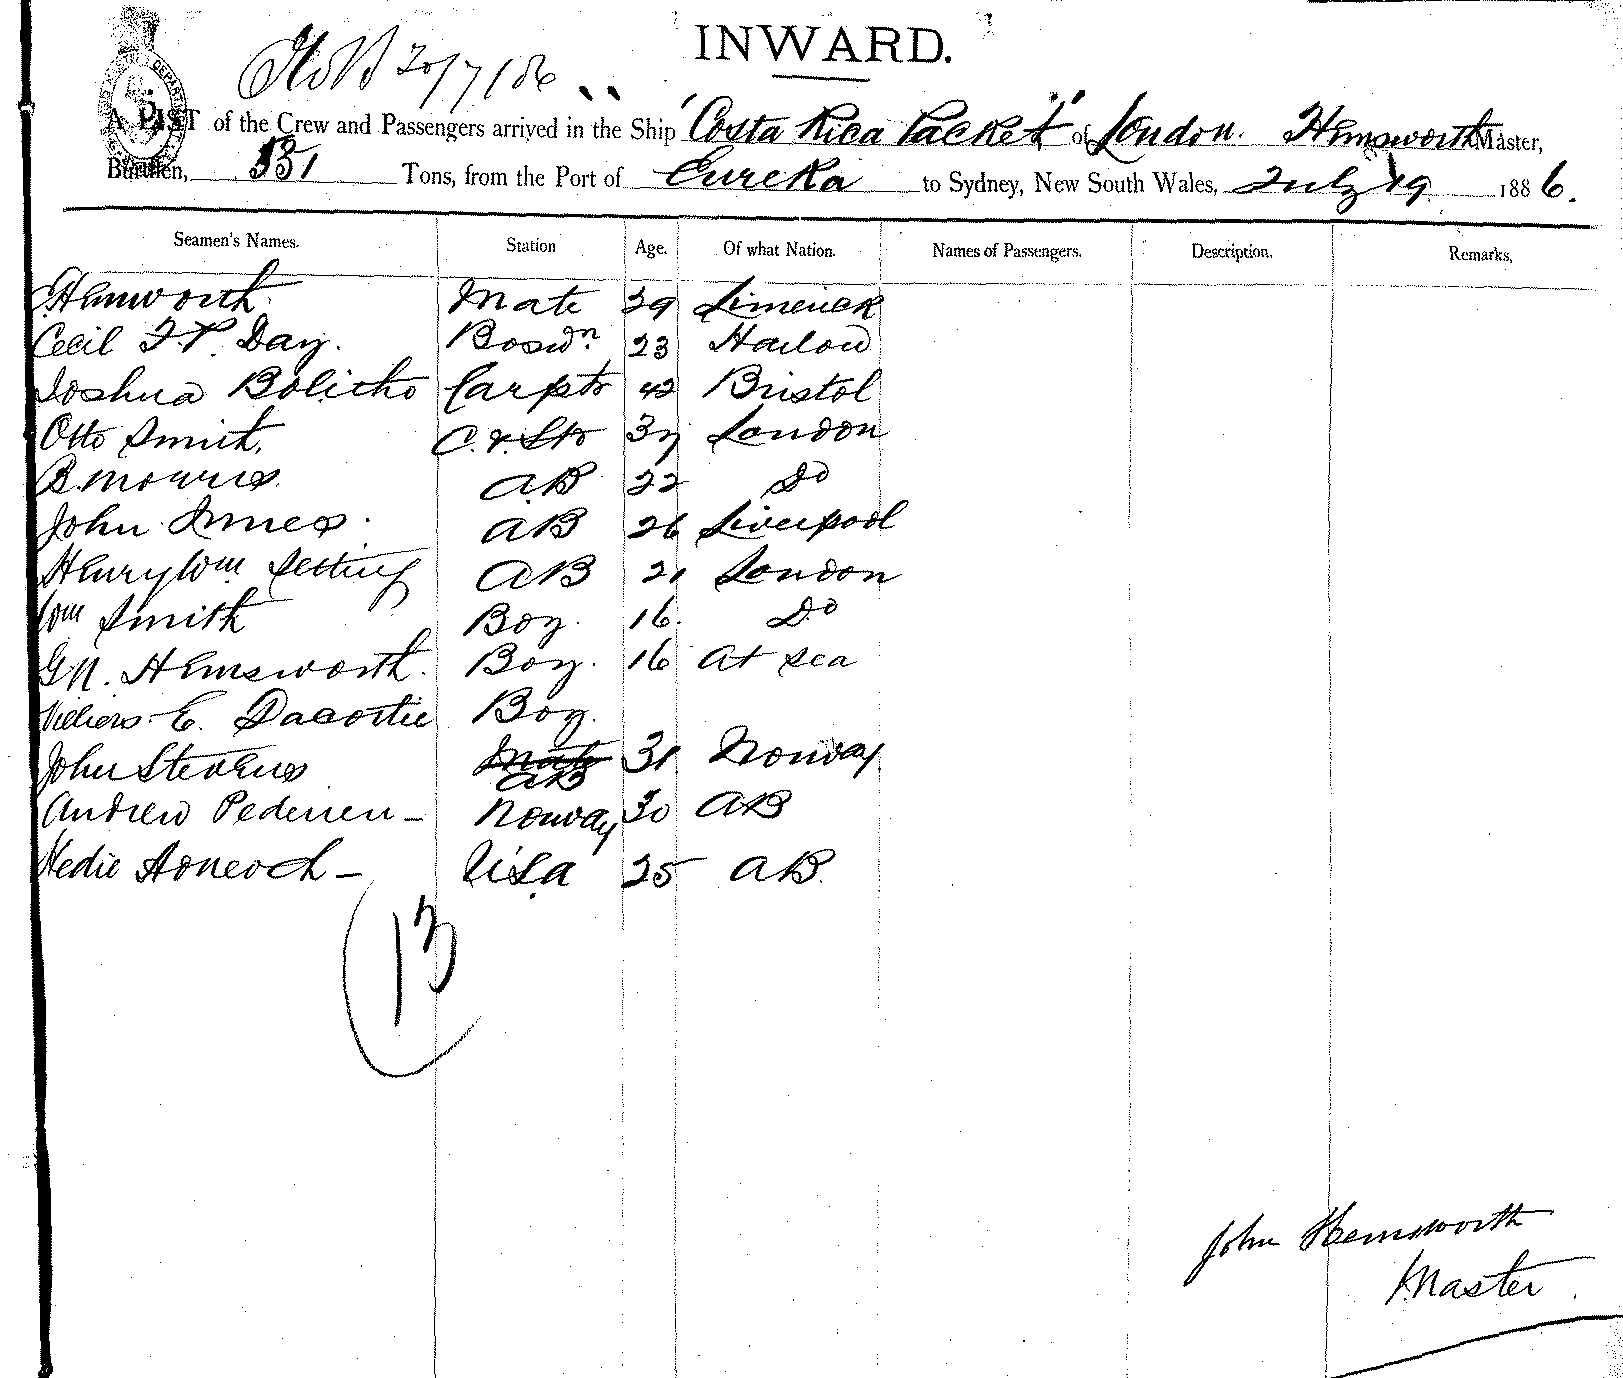 INWARD.
20/7/86
A LIST of the Crew and Passengers arrived in the Ship "Costa Rica Packet" of London. Hemsworth Master,
Burthen, 531 Tons, from the Port of Eureka to Sydney, New South Wales, July 19 1886.
Seamen's Names. Station Age. Of what Nation. Names of Passengers. Description. Remarks,
Hemworth Mate 39 Limerick
Cecil F.P. Day. Boswn. 23 Harlow
Joshua Bolitho Carptr 42 Bristol
Otto Smith. C. & Std 37 London
B. Morris AB 22 Do
John Innes. AB 26 Liverpool
Henry Wm Setting AB 21 London
Wm Smith Boy. 16. Do
G.N. Hemsworth. Boy. 16 At sea
Villiers E. Dacostie Boy.
John Stevens Mate AB 31 Norway
Andrew Pedersen - Norway 30 AB
25 AB.
13
John Hemsworth
Master